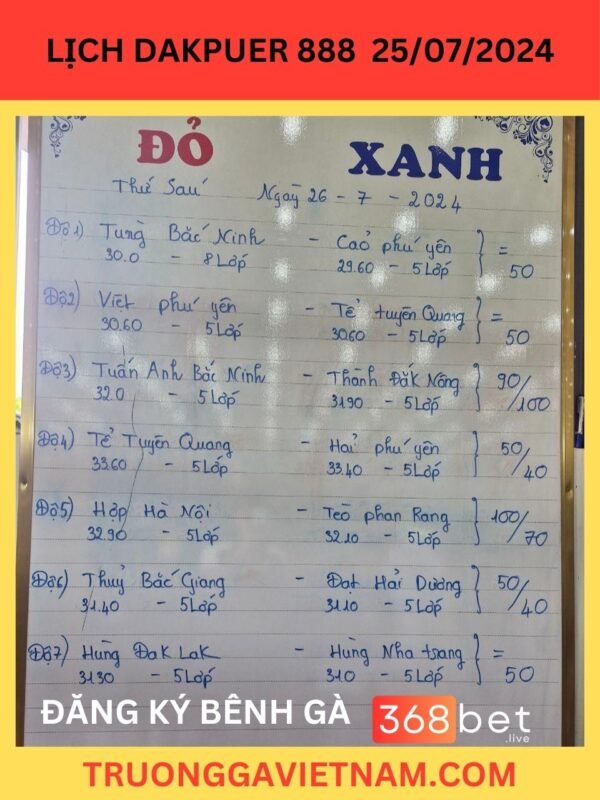 LỊCH DAKPUER 888 25/07/2024
ĐỎ XANH
Thứ Sáu Ngày 26 - 7 - 2024
Độ1) Tùng Bắc Ninh - Cao phú yên } =
30.0 - 8 Lốp 29.60 - 5 Lốp 50
Độ2) Việt phú yên - Tể tuyên Quang } =
30.60 - 5 Lốp 30.60 - 5 Lốp 50
Độ3) Tuấn Anh Bắc Ninh - Thành Đắk Nông } 90/100
32.0 - 5 Lốp 31.90 - 5 Lốp
Độ4) Tể Tuyên Quang - Hải phú yên } 50/40
33.60 - 5 Lốp 33.40 - 5 Lốp
Độ5) Hợp Hà Nội - Tèo phan Rang } 100/70
32.90 - 5 Lốp 32.10 - 5 Lốp
Độ6) Thuỷ Bắc Giang - Đạt Hải Dương } 50/40
31.40 - 5 Lốp 31.10 - 5 Lốp
Độ7) Hùng Đak Lak - Hùng Nha trang } =
31.30 - 5 Lốp 31.0 - 5 Lốp 50
ĐĂNG KÝ BÊNH GÀ 368bet
.live
TRUONGGAVIETNAM.COM